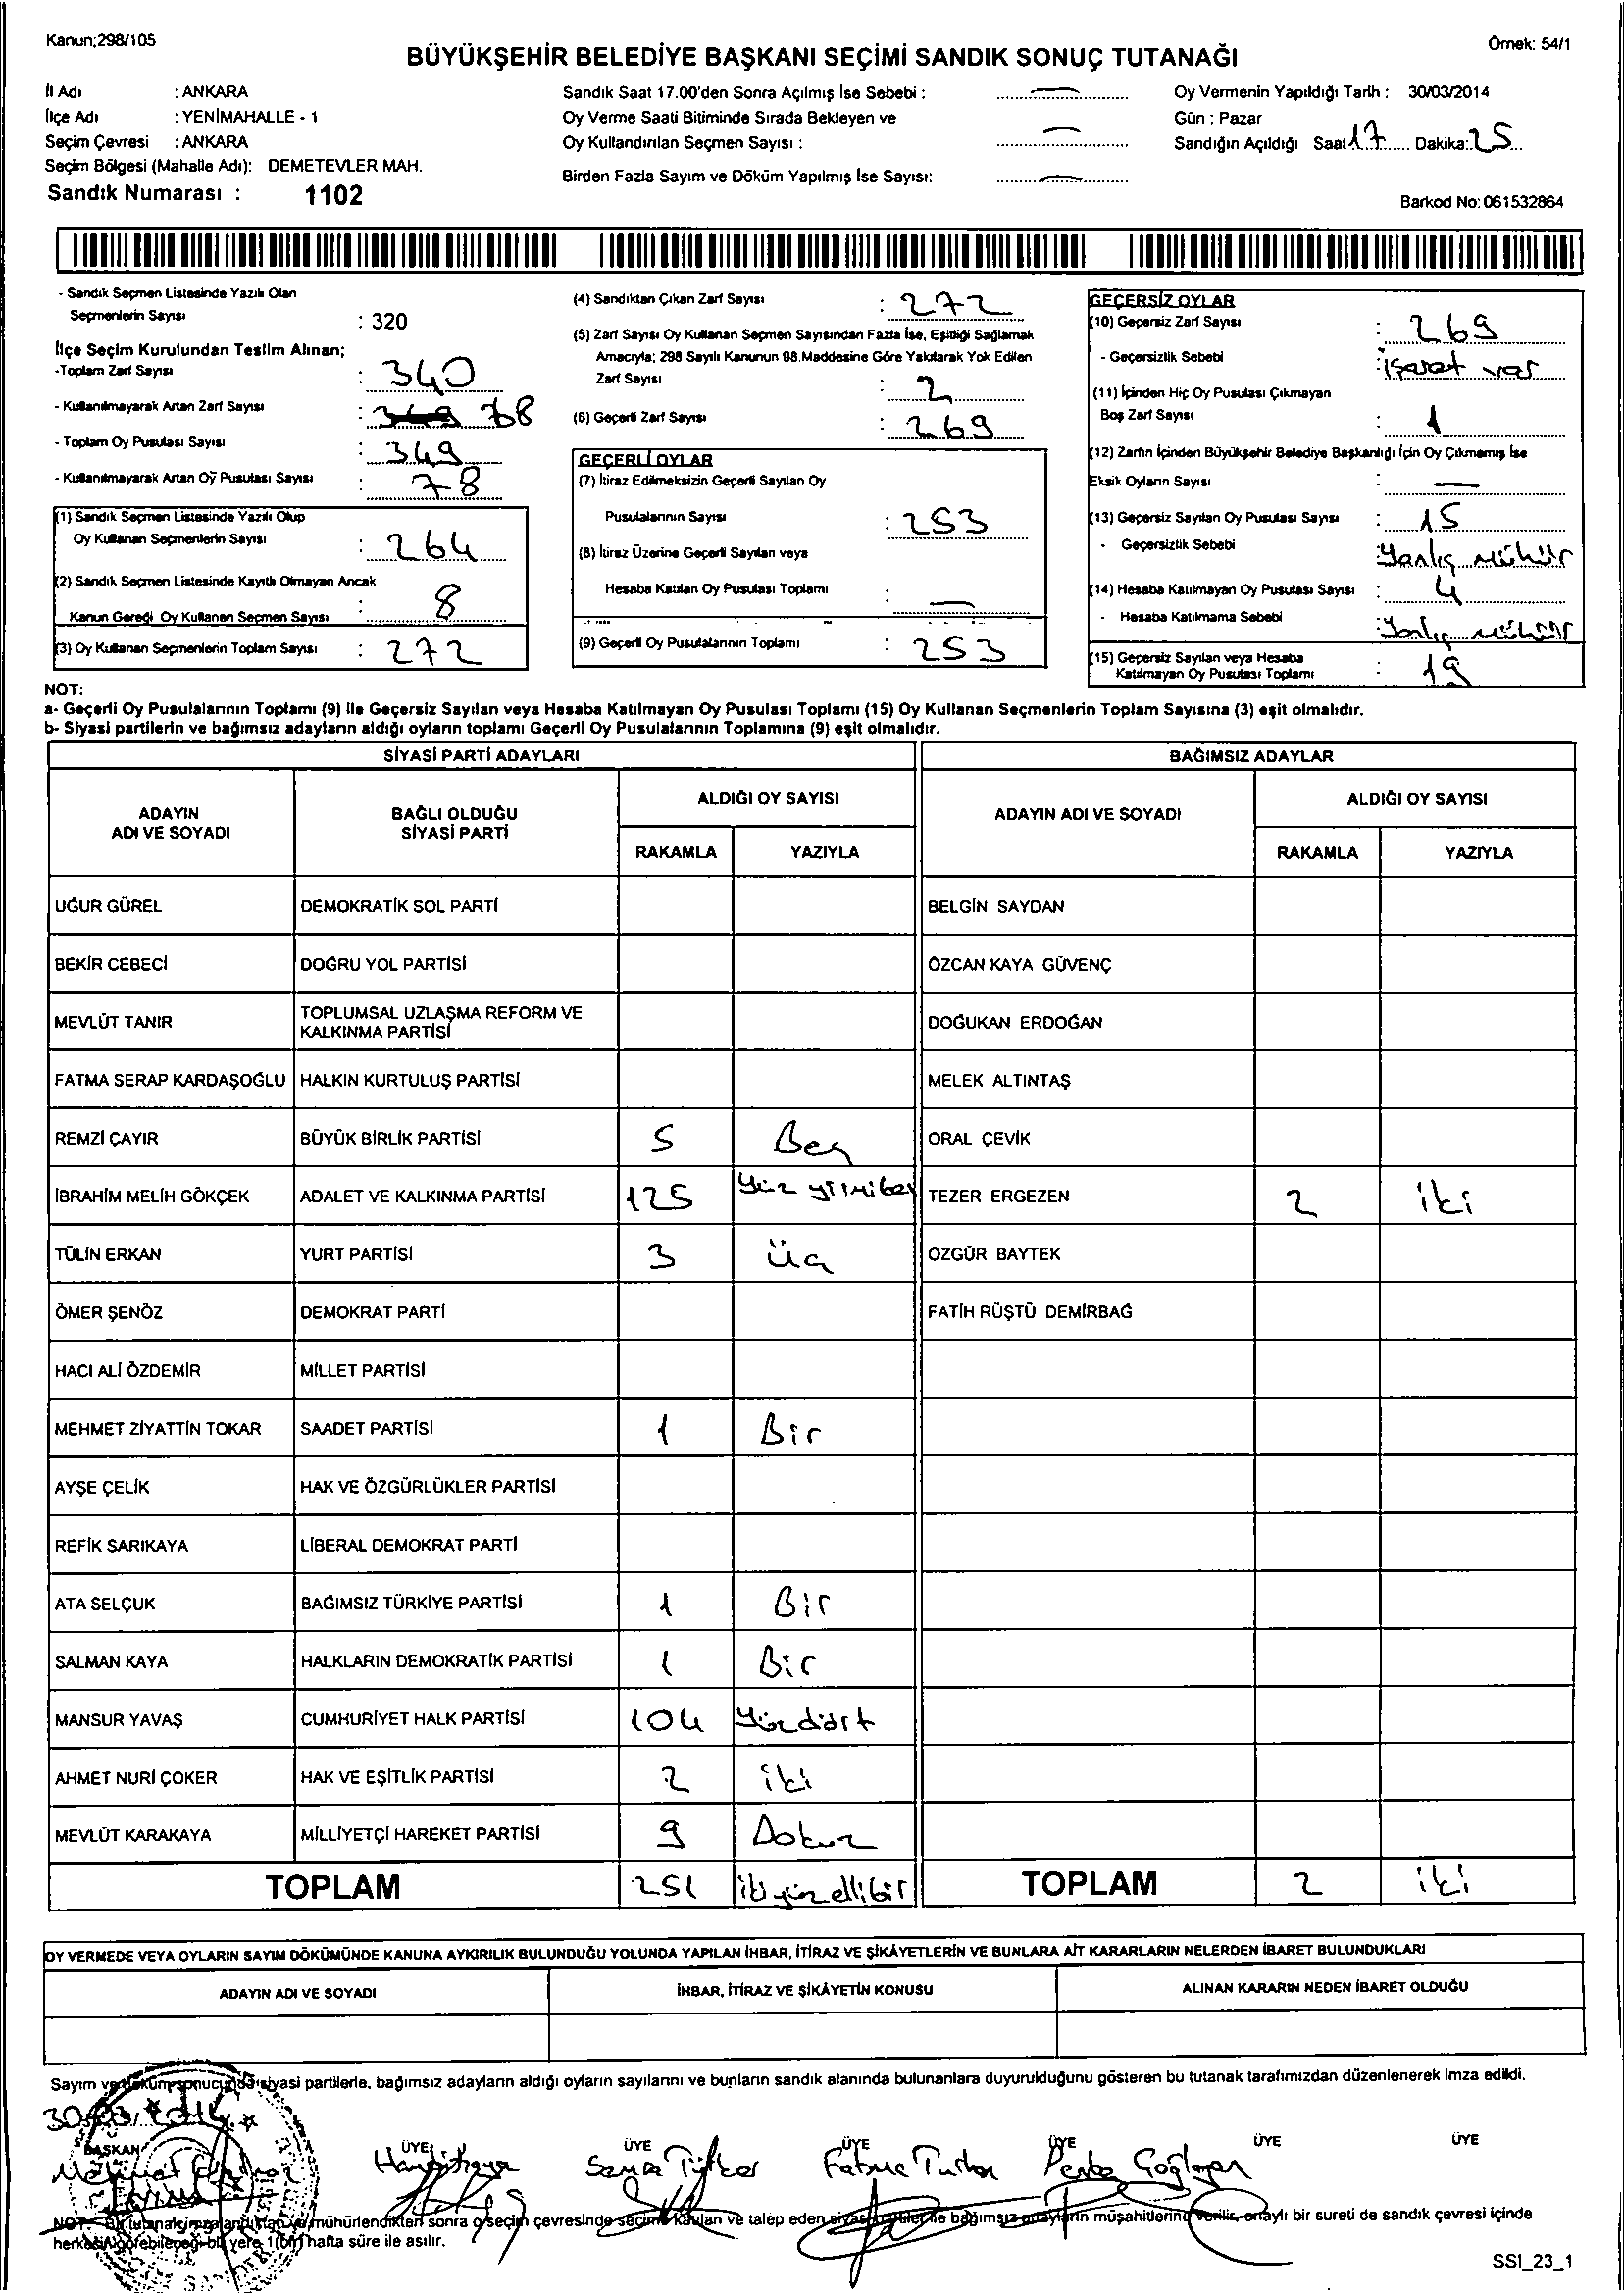 Kanun;298/105
Örnek: 54/1
BÜYÜKŞEHİR BELEDİYE BAŞKANI SEÇİMİ SANDIK SONUÇ TUTANAĞI
İl Adı : ANKARA
İlçe Adı : YENİMAHALLE - 1
Seçim Çevresi : ANKARA
Seçim Bölgesi (Mahalle Adı): DEMETEVLER MAH.
Sandık Numarası : 1102
Sandık Saat 17.00'den Sonra Açılmış İse Sebebi : —
Oy Verme Saati Bitiminde Sırada Bekleyen ve
Oy Kullandırılan Seçmen Sayısı : —
Birden Fazla Sayım ve Döküm Yapılmış İse Sayısı: —
Oy Vermenin Yapıldığı Tarih : 30/03/2014
Gün : Pazar
Sandığın Açıldığı Saat 17 Dakika: 25
Barkod No: 061532864
- Sandık Seçmen Listesinde Yazılı Olan
Seçmenlerin Sayısı : 320
İlçe Seçim Kurulundan Teslim Alınan;
-Toplam Zarf Sayısı : 340
- Kullanılmayarak Artan Zarf Sayısı : 68
- Toplam Oy Pusulası Sayısı : 349
- Kullanılmayarak Artan Oy Pusulası Sayısı : 78
(1) Sandık Seçmen Listesinde Yazılı Olup
Oy Kullanan Seçmenlerin Sayısı : 264
(2) Sandık Seçmen Listesinde Kayıtlı Olmayan Ancak
Kanun Gereği Oy Kullanan Seçmen Sayısı : 8
(3) Oy Kullanan Seçmenlerin Toplam Sayısı : 272
(4) Sandıktan Çıkan Zarf Sayısı : 272
(5) Zarf Sayısı Oy Kullanan Seçmen Sayısından Fazla İse, Eşitliği Sağlamak
Amacıyla; 298 Sayılı Kanunun 98.Maddesine Göre Yakılarak Yok Edilen
Zarf Sayısı : 2
(6) Geçerli Zarf Sayısı : 269
GEÇERLİ OYLAR
(7) İtiraz Edilmeksizin Geçerli Sayılan Oy
Pusulalarının Sayısı : 253
(8) İtiraz Üzerine Geçerli Sayılan veya
Hesaba Katılan Oy Pusulası Toplamı : —
(9) Geçerli Oy Pusulalarının Toplamı : 253
GEÇERSİZ OYLAR
(10) Geçersiz Zarf Sayısı : 269
- Geçersizlik Sebebi : işaret var
(11) İçinden Hiç Oy Pusulası Çıkmayan
Boş Zarf Sayısı : 1
(12) Zarfın İçinden Büyükşehir Belediye Başkanlığı İçin Oy Çıkmamış İse
Eksik Oyların Sayısı : —
(13) Geçersiz Sayılan Oy Pusulası Sayısı : 15
- Geçersizlik Sebebi : Yanlış Mühür
(14) Hesaba Katılmayan Oy Pusulası Sayısı : 4
- Hesaba Katılmama Sebebi : Yanlış Mühür
(15) Geçersiz Sayılan veya Hesaba
Katılmayan Oy Pusulası Toplamı : 19
NOT:
a- Geçerli Oy Pusulalarının Toplamı (9) ile Geçersiz Sayılan veya Hesaba Katılmayan Oy Pusulası Toplamı (15) Oy Kullanan Seçmenlerin Toplam Sayısına (3) eşit olmalıdır.
b- Siyasi partilerin ve bağımsız adayların aldığı oyların toplamı Geçerli Oy Pusulalarının Toplamına (9) eşit olmalıdır.
SİYASİ PARTİ ADAYLARI
BAĞIMSIZ ADAYLAR
ADAYIN ADI VE SOYADI
BAĞLI OLDUĞU SİYASİ PARTİ
ALDIĞI OY SAYISI
RAKAMLA YAZIYLA
ADAYIN ADI VE SOYADI
ALDIĞI OY SAYISI
RAKAMLA YAZIYLA
UĞUR GÜREL DEMOKRATİK SOL PARTİ BELGİN SAYDAN
BEKİR CEBECİ DOĞRU YOL PARTİSİ ÖZCAN KAYA GÜVENÇ
MEVLÜT TANIR TOPLUMSAL UZLAŞMA REFORM VE KALKINMA PARTİSİ DOĞUKAN ERDOĞAN
FATMA SERAP KARDAŞOĞLU HALKIN KURTULUŞ PARTİSİ MELEK ALTINTAŞ
REMZİ ÇAYIR BÜYÜK BİRLİK PARTİSİ 5 Beş ORAL ÇEVİK
İBRAHİM MELİH GÖKÇEK ADALET VE KALKINMA PARTİSİ 125 Yüz yirmibeş TEZER ERGEZEN 2 iki
TÜLİN ERKAN YURT PARTİSİ 3 Üç ÖZGÜR BAYTEK
ÖMER ŞENÖZ DEMOKRAT PARTİ FATİH RÜŞTÜ DEMİRBAĞ
HACI ALİ ÖZDEMİR MİLLET PARTİSİ
MEHMET ZİYATTİN TOKAR SAADET PARTİSİ 1 Bir
AYŞE ÇELİK HAK VE ÖZGÜRLÜKLER PARTİSİ
REFİK SARIKAYA LİBERAL DEMOKRAT PARTİ
ATA SELÇUK BAĞIMSIZ TÜRKİYE PARTİSİ 1 Bir
SALMAN KAYA HALKLARIN DEMOKRATİK PARTİSİ 1 Bir
MANSUR YAVAŞ CUMHURİYET HALK PARTİSİ 104 Yüzdört
AHMET NURİ ÇOKER HAK VE EŞİTLİK PARTİSİ 2 iki
MEVLÜT KARAKAYA MİLLİYETÇİ HAREKET PARTİSİ 9 Dokuz
TOPLAM 251 ikiyüzellibir TOPLAM 2 iki
OY VERMEDE VEYA OYLARIN SAYIM DÖKÜMÜNDE KANUNA AYKIRILIK BULUNDUĞU YOLUNDA YAPILAN İHBAR, İTİRAZ VE ŞİKÂYETLERİN VE BUNLARA AİT KARARLARIN NELERDEN İBARET BULUNDUKLARI
ADAYIN ADI VE SOYADI İHBAR, İTİRAZ VE ŞİKÂYETİN KONUSU ALINAN KARARIN NEDEN İBARET OLDUĞU
Sayım ve döküm sonucunda siyasi partilerle, bağımsız adayların aldığı oyların sayılarını ve bunların sandık alanında bulunanlara duyurulduğunu gösteren bu tutanak tarafımızdan düzenlenerek imza edildi.
30/03/2014
BAŞKAN ÜYE ÜYE ÜYE ÜYE ÜYE ÜYE
Mehmet Semra Fatma
NOT: Bu tutanak imzalandıktan ve mühürlendikten sonra o seçim çevresinde seçime katılan ve talep eden siyasi partiler ile bağımsız adayların müşahitlerine verilir, onaylı bir sureti de sandık çevresi içinde
herkesin görebileceği bir yere 1(bir) hafta süre ile asılır.
SSI_23_1